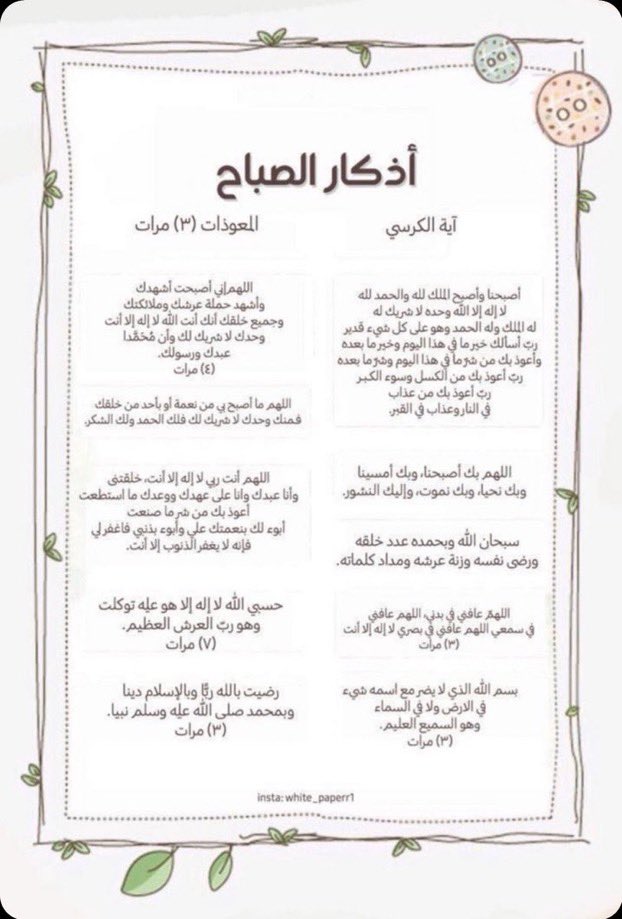 أذكار الصباح
آية الكرسي
المعوذات (٣) مرات
أصبحنا وأصبح الملك لله والحمد لله
لا إله إلا الله وحده لا شريك له
له الملك وله الحمد وهو على كل شيء قدير
ربّ أسألك خير ما في هذا اليوم وخير ما بعده
وأعوذ بك من شرّ ما في هذا اليوم وشرّ ما بعده
ربّ أعوذ بك من الكسل وسوء الكبر
ربّ أعوذ بك من عذاب
في النار وعذاب في القبر.
اللهم إني أصبحت أشهدك
وأشهد حملة عرشك وملائكتك
وجميع خلقك أنك أنت الله لا إله إلا أنت
وحدك لا شريك لك وأن مُحَمَّدا
عبدك ورسولك.
(٤) مرات
اللهم ما أصبح بي من نعمة أو بأحد من خلقك
فمنك وحدك لا شريك لك فلك الحمد ولك الشكر.
اللهم بك أصبحنا، وبك أمسينا
وبك نحيا، وبك نموت، وإليك النشور.
اللهم أنت ربي لا إله إلا أنت، خلقتنى
وأنا عبدك وانا على عهدك ووعدك ما استطعت
أعوذ بك من شر ما صنعت
أبوء لك بنعمتك علي وأبوء بذنبي فاغفر لي
فإنه لا يغفر الذنوب إلا أنت.
سبحان الله وبحمده عدد خلقه
ورضى نفسه وزنة عرشه ومداد كلماته.
حسبي الله لا إله إلا هو عليه توكلت
وهو ربّ العرش العظيم.
(٧) مرات
اللهمّ عافني في بدني، اللهم عافني
في سمعي اللهم عافني في بصري لا إله إلا أنت
(٣) مرات
بسم الله الذي لا يضر مع اسمه شيء
في الارض ولا في السماء
وهو السميع العليم.
(٣) مرات
رضيت بالله ربًّا وبالإسلام دينا
وبمحمد صلى الله عليه وسلم نبيا.
(٣) مرات
insta: white_paperr1